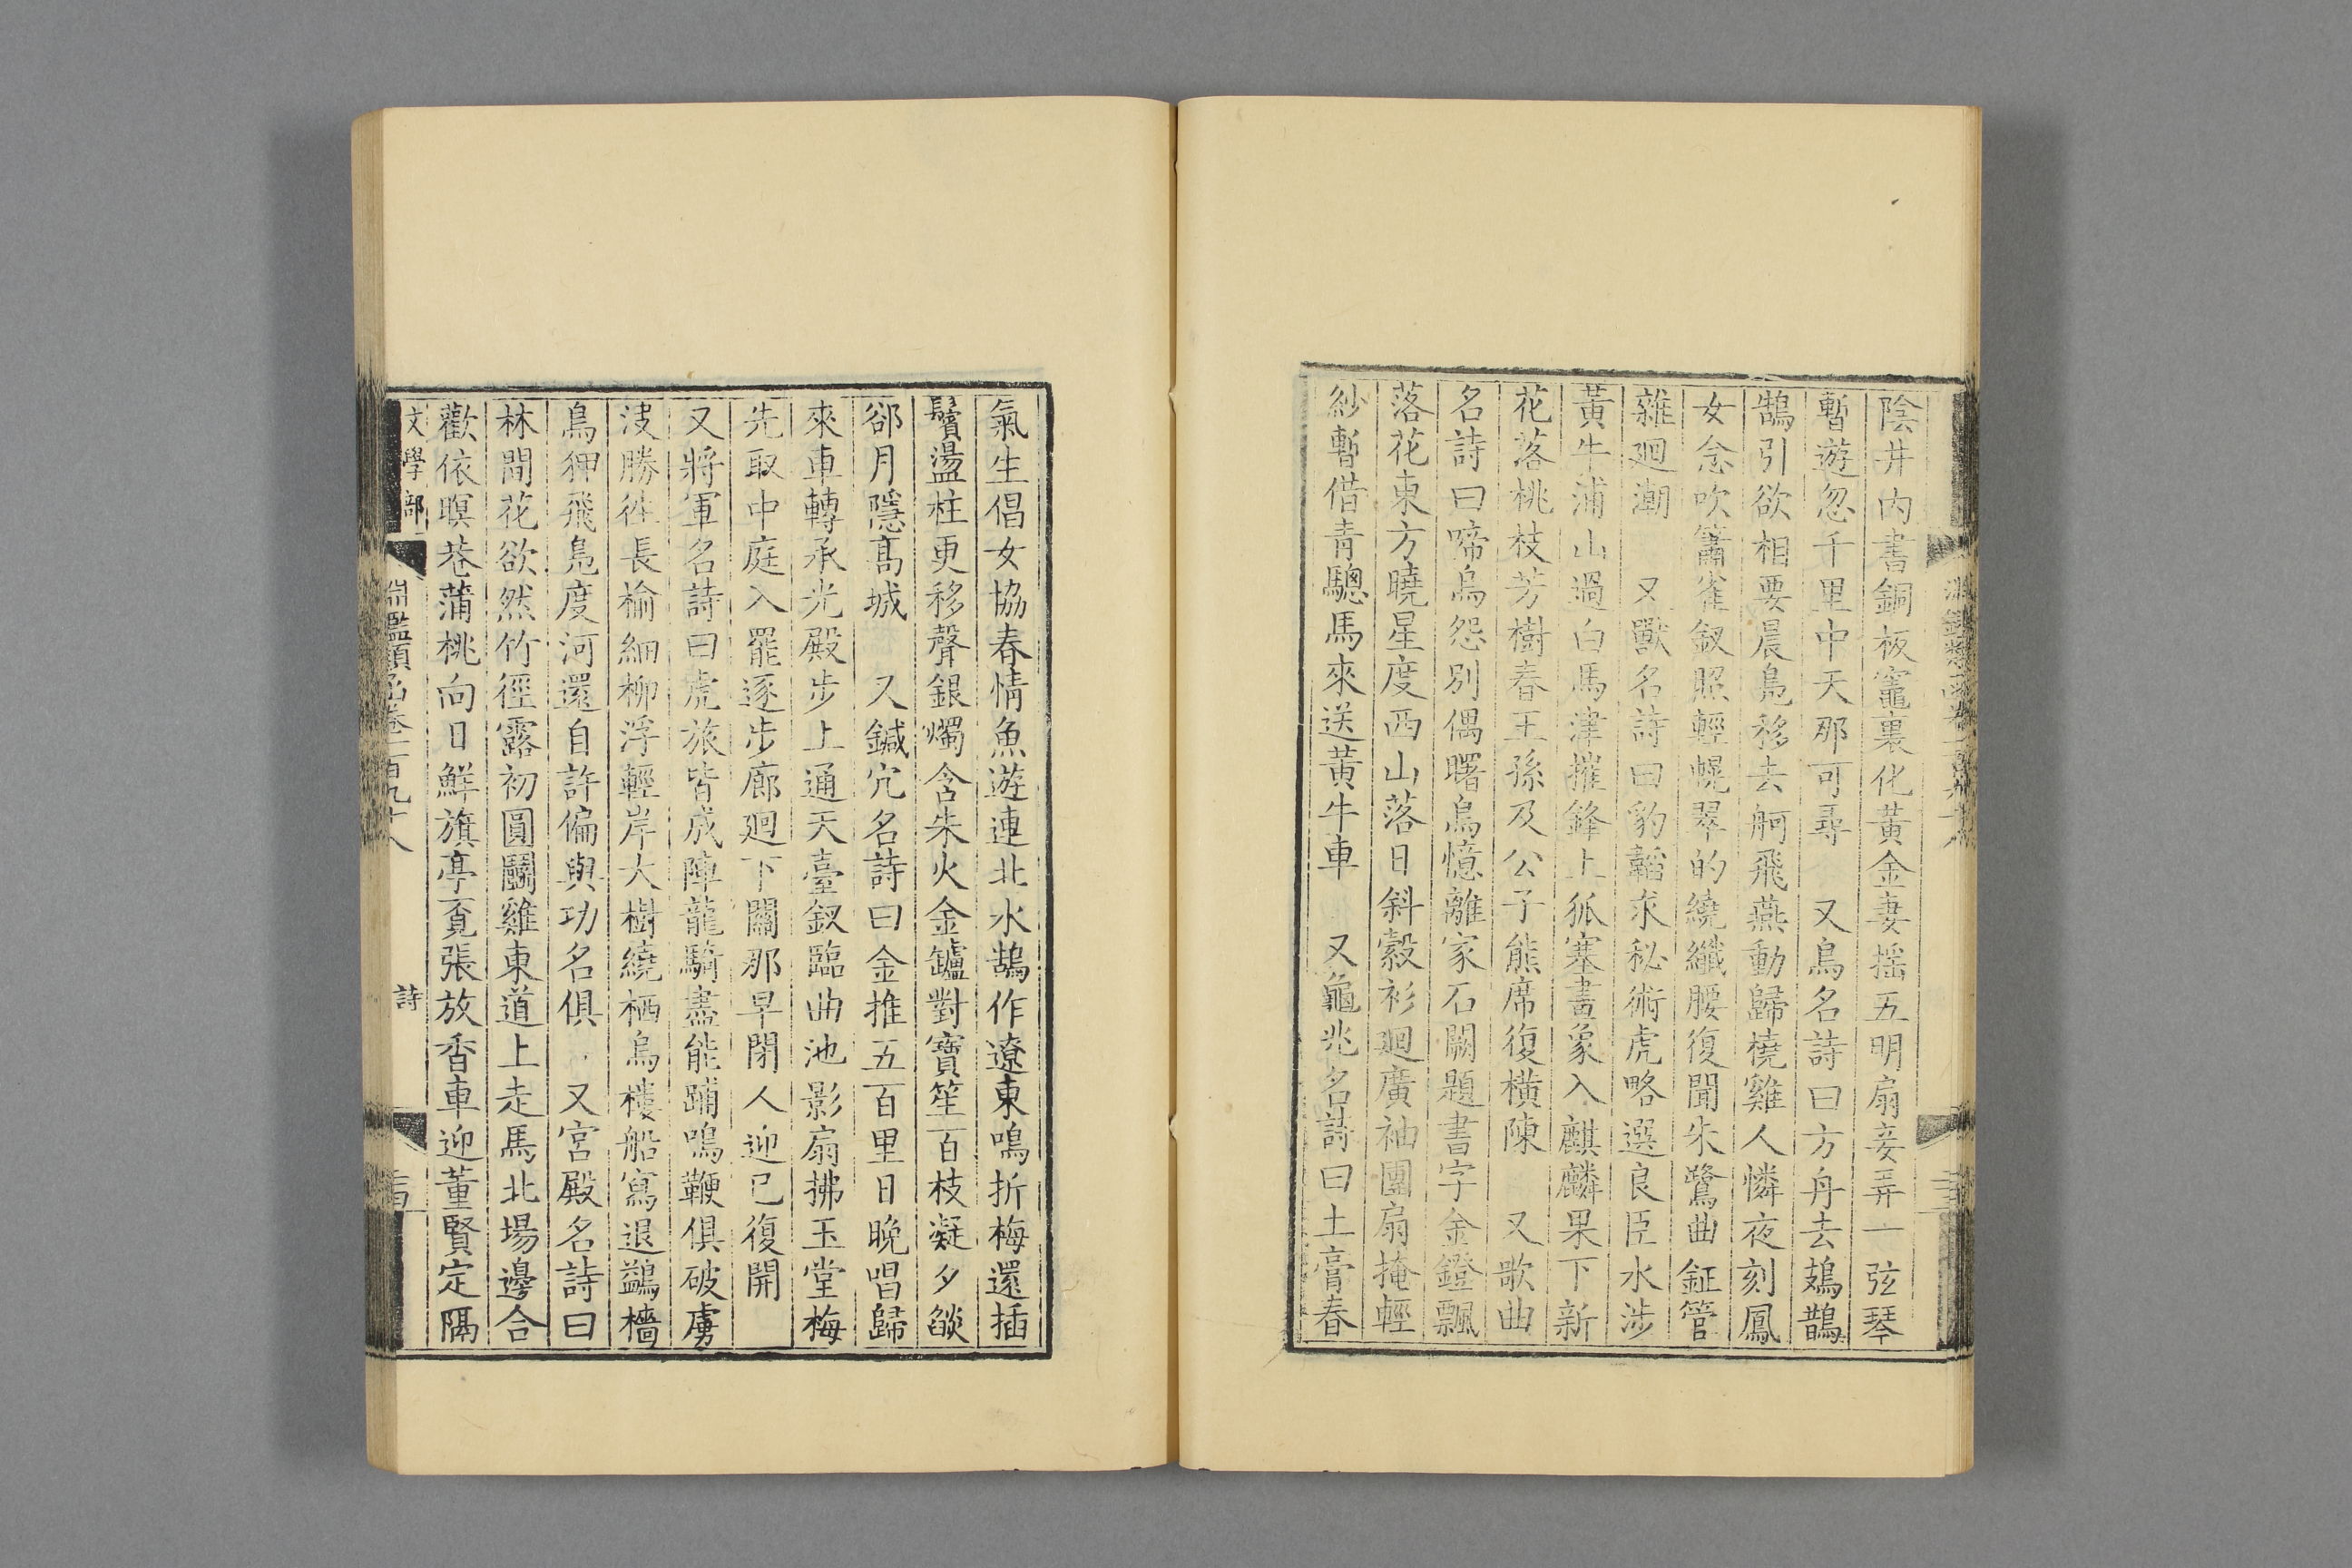 陰井內書銅板竈裏化黃金妻摇五明扇妾弄一弦琴
暫遊忽千里中天那可尋　又鳥名詩曰方舟去鳷鵲
鵠引欲相要晨鳧移去舸飛燕動歸橈雞人憐夜刻鳳
女念吹簫雀釵照輕幌翠的繞纖腰復聞朱鷺曲鉦管
雜迴潮　又獸名詩曰豹韜求秘術虎略選良臣水涉
黃牛浦山過白馬津摧鋒上狐塞畫象入麒麟果下新
花落桃枝芳樹春王孫及公子熊席復橫陳　又歌曲
名詩曰啼烏怨別偶曙烏憶離家石闕題書字金鐙飄
落花東方曉星度西山落日斜縠衫廻廣袖團扇掩輕
紗暫借青驄馬來送黃牛車　又龜兆名詩曰土膏春
氣生倡女協春情魚遊連北水鵲作遼東鳴折梅還插
鬢盪柱更移聲銀燭含朱火金鑪對寶笙百枝凝夕燄
郤月隱髙城　又鍼穴名詩曰金推五百里日晚唱歸
來車轉承光殿步上通天臺釵臨曲池影扇拂玉堂梅
先取中庭入罷逐步廊廻下關那早閉人迎已復開
又將軍名詩曰虎旅皆成陣龍騎盡能踊鳴鞭俱破虜
決勝徃長榆細柳浮輕岸大樹繞栖烏樓船寫退鷁檣
烏狎飛鳧度河還自許偏與功名俱　又宮殿名詩曰
林間花欲然竹徑露初圓鬬雞東道上走馬北場邊合
歡依暝巷蒲桃向日鮮旗亭覓張放香車迎董賢定隔
文學部　淵鑑類函卷一百九十八　詩